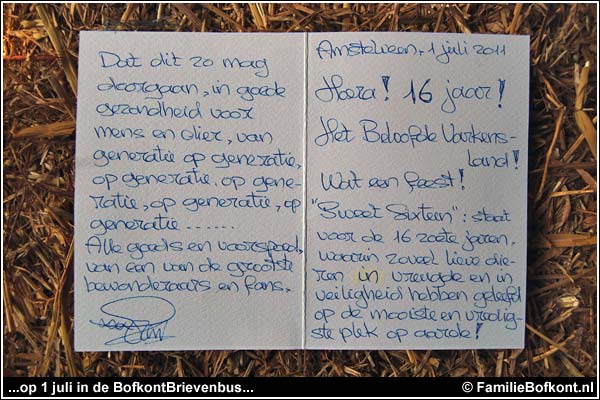 Dat dit zo mag
doorgaan, in goede
gezondheid voor
mens en dier, van
generatie op generatie,
op generatie, op gene-
ratie, op generatie, op
generatie......
Alle goeds en voorspoed,
van een van de grootste
bewonderaars en fans.
Amstelveen, 1 juli 2011
Hoera! 16 jaar!
Het Beloofde Varkens-
land!
Wat een feest!
"Sweet Sixteen": staat
voor de 16 zoete jaren,
waarin zoveel lieve die-
ren in vreugde en in
veiligheid hebben geleefd
op de mooiste en vredig-
ste plek op aarde!
...op 1 juli in de BofkontBrievenbus...
© FamilieBofkont.nl